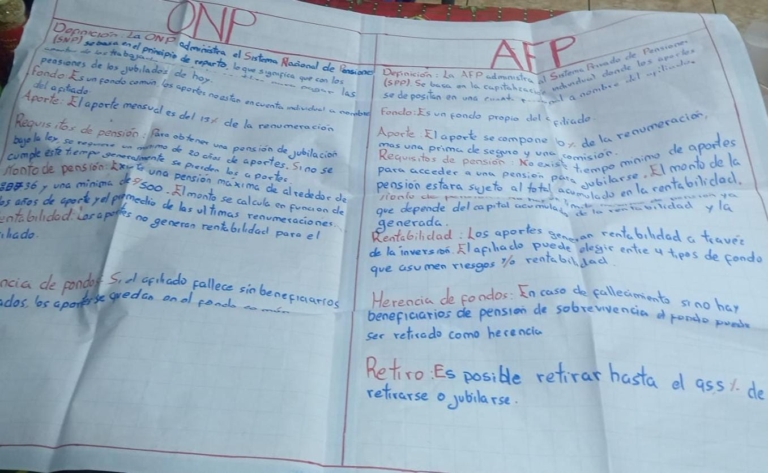 ONP
Definición: La ONP administra el Sistema Nacional de Pensiones
(SNP) se basa en el principio de reparto, lo que significa que con los
de los trabaja las
pensiones de los jubilados de hoy.
Fondo: Es un fondo común, los aportes no estan en cuenta individual a nombre
del afiliado
Aporte: El aporte mensual es del 13% de la remuneración
Requisitos de pensión: Para obtener una pensión de jubilación
bajo la ley se requiere un mínimo de 20 años de aportes. Si no se
cumple este tiempo generalmente se pierden los aportes.
Monto de pensión: Existe una pensión máxima de alrededor de
y una mínima de 500. El monto se calcula en funcion de
los años de aporte y el promedio de las ultimas remuneraciones.
Rentabilidad: Los aportes no generan rentabilidad para el
afiliado.
ncia de fondos: Si el afiliado fallece sin beneficiarios
ados, los aportes se quedan en el fondo
AFP
Definición: La AFP administra el Sistema Privado de Pensiones
(SPP). Se basa en la capitalización individual donde los aportes
se depositan en una cuenta a nombre del afiliado
Fondo: Es un fondo propio del afiliado
Aporte: El aporte se compone de la remuneración,
mas una prima de seguro y una comisión.
Requisitos de pensión: No existe tiempo mínimo de aportes
para acceder a una pensión por jubilarse. El monto de la
pensión estara sujeto al total acumulado en la rentabilidad.
que depende del capital acumulado de la rentabilidad y la
generada.
Rentabilidad: Los aportes generan rentabilidad a través
de la inversión. El afiliado puede elegir entre 4 tipos de fondo
que asumen riesgos y/o rentabilidad.
Herencia de fondos: En caso de fallecimiento si no hay
beneficiarios de pensión de sobrevivencia el fondo puede
ser retirado como herencia
Retiro: Es posible retirar hasta el 95.5% de
retirarse o jubilarse.